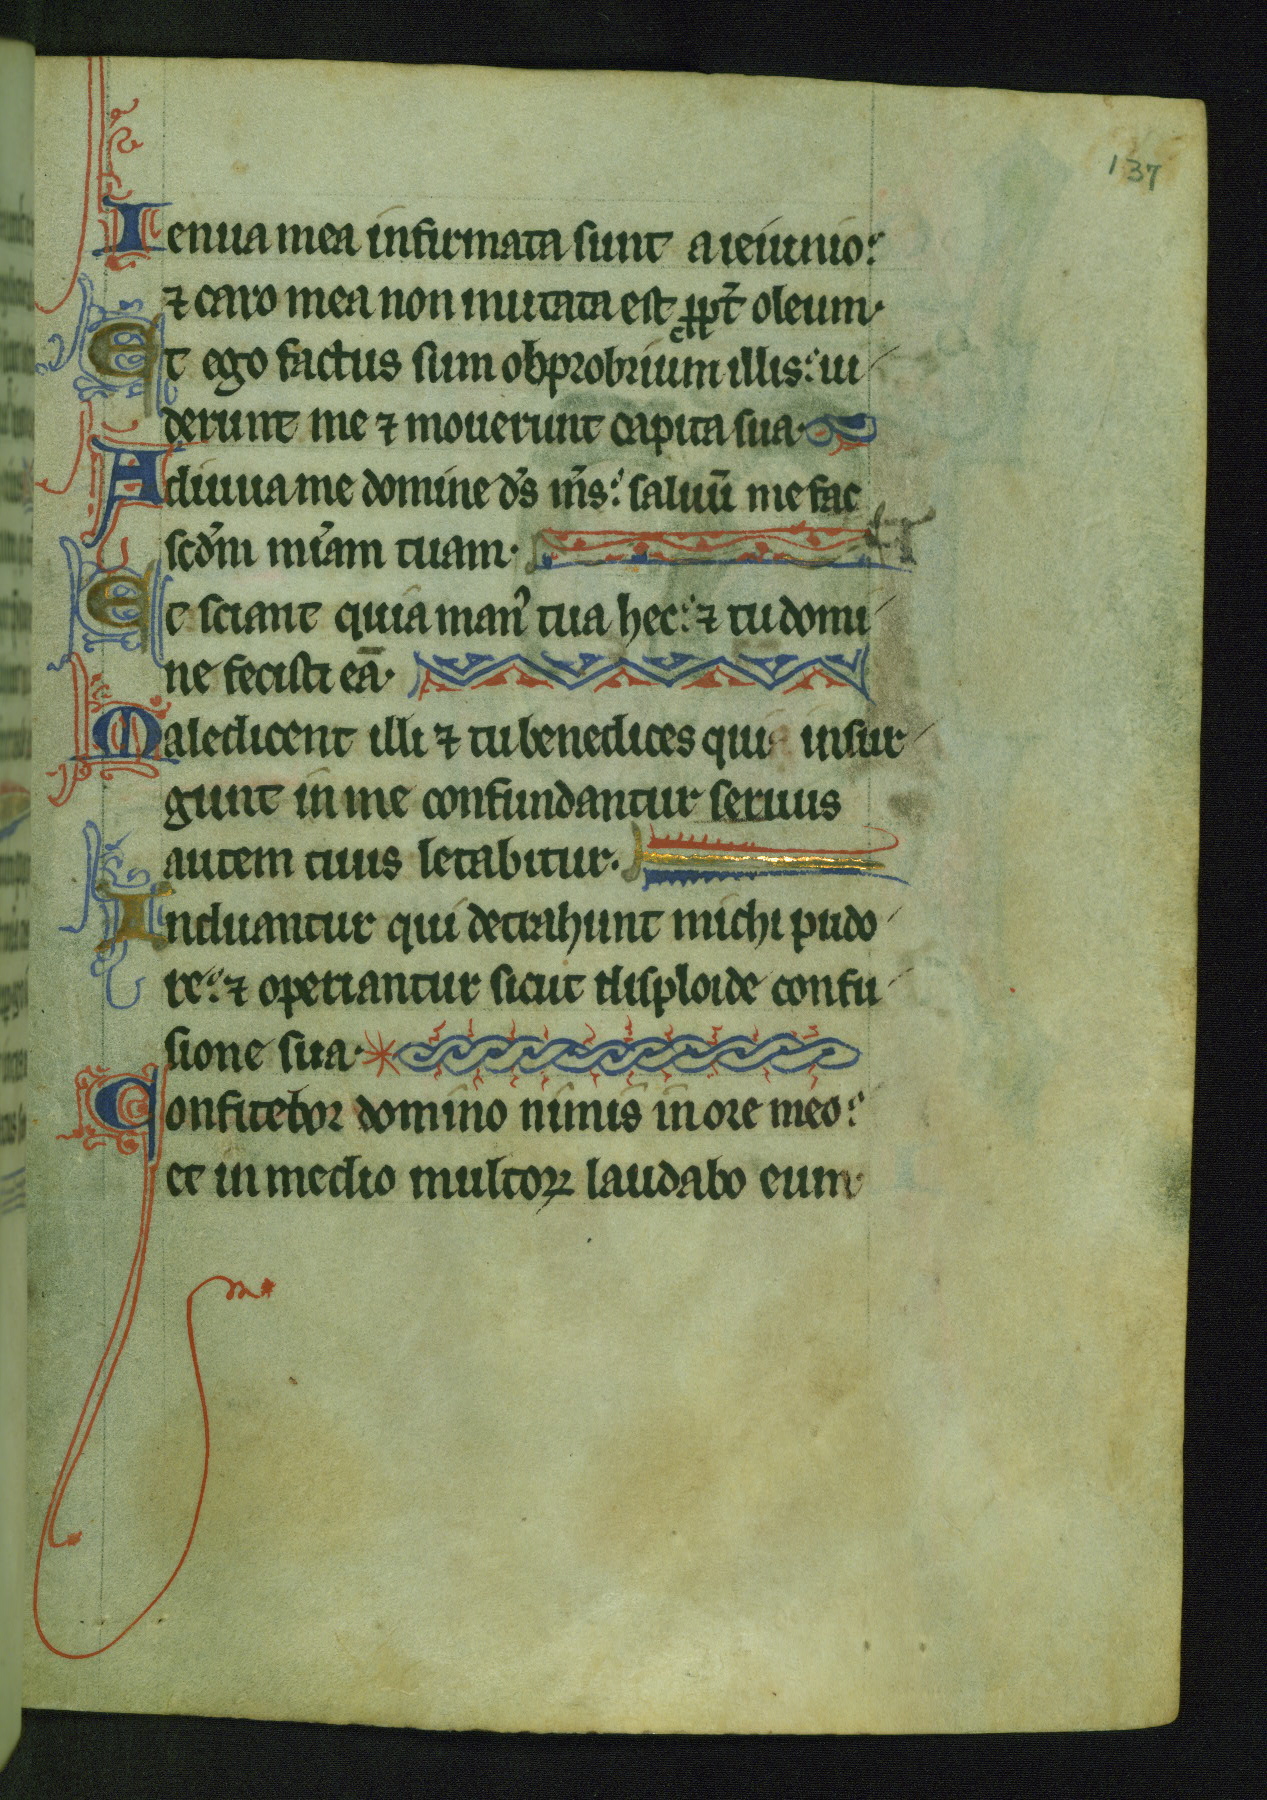 137
Ienua mea infirmata sunt a ieiunio:
⁊ caro mea non mutata est ꝓpt̃ oleum·
Et ego factus sum obprobrium illis: ui
derunt me ⁊ mouerunt capita sua·
Adiuua me domine ds̃ ms̃: saluũ me fac
scd̃m mĩam tuam·
Et sciant quia man᾿ tua hec: ⁊ tu domi
ne fecisti eã·
Maledicent illi ⁊ tu benedices qui insur
gunt in me confundantur seruus
autem tuus letabitur·
Induantur qui detrahunt michi pudo
re: ⁊ operiantur sicut disploide confu
sione sua·
Confitebor domino nimis in ore meo:
et in medio multoꝝ laudabo eum·